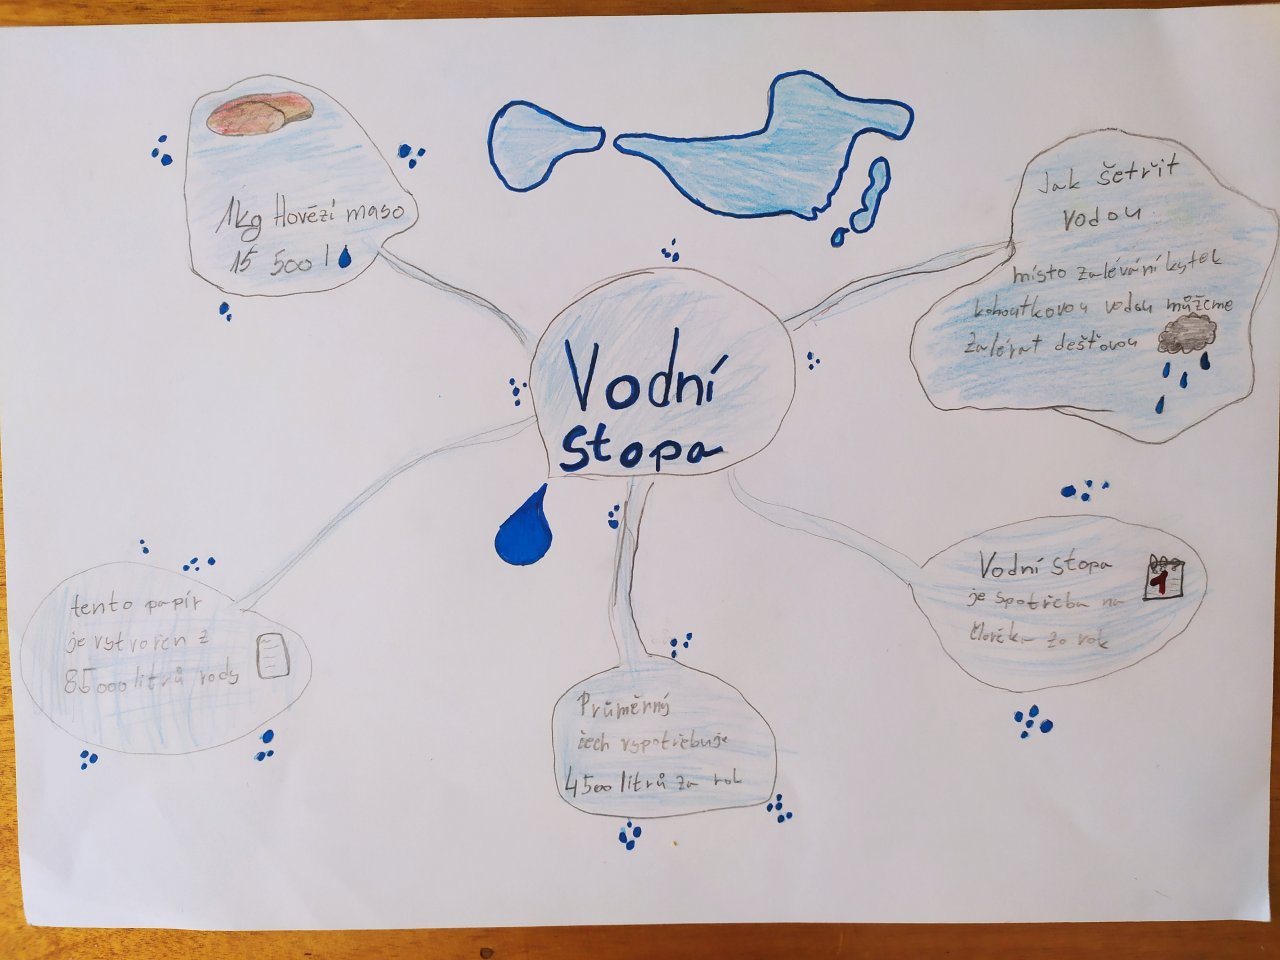 Vodní
stopa
1kg Hovězí maso
15 500 l
Jak šetřit
vodou
místo zalévání kytek
kohoutkovou vodou můžeme
zalévat dešťovou
Vodní stopa
je spotřeba na
člověka za rok
1
Průměrný
čech vypotřebuje
4500 litrů za rok
tento papír
je vytvořen z
85000 litrů vody